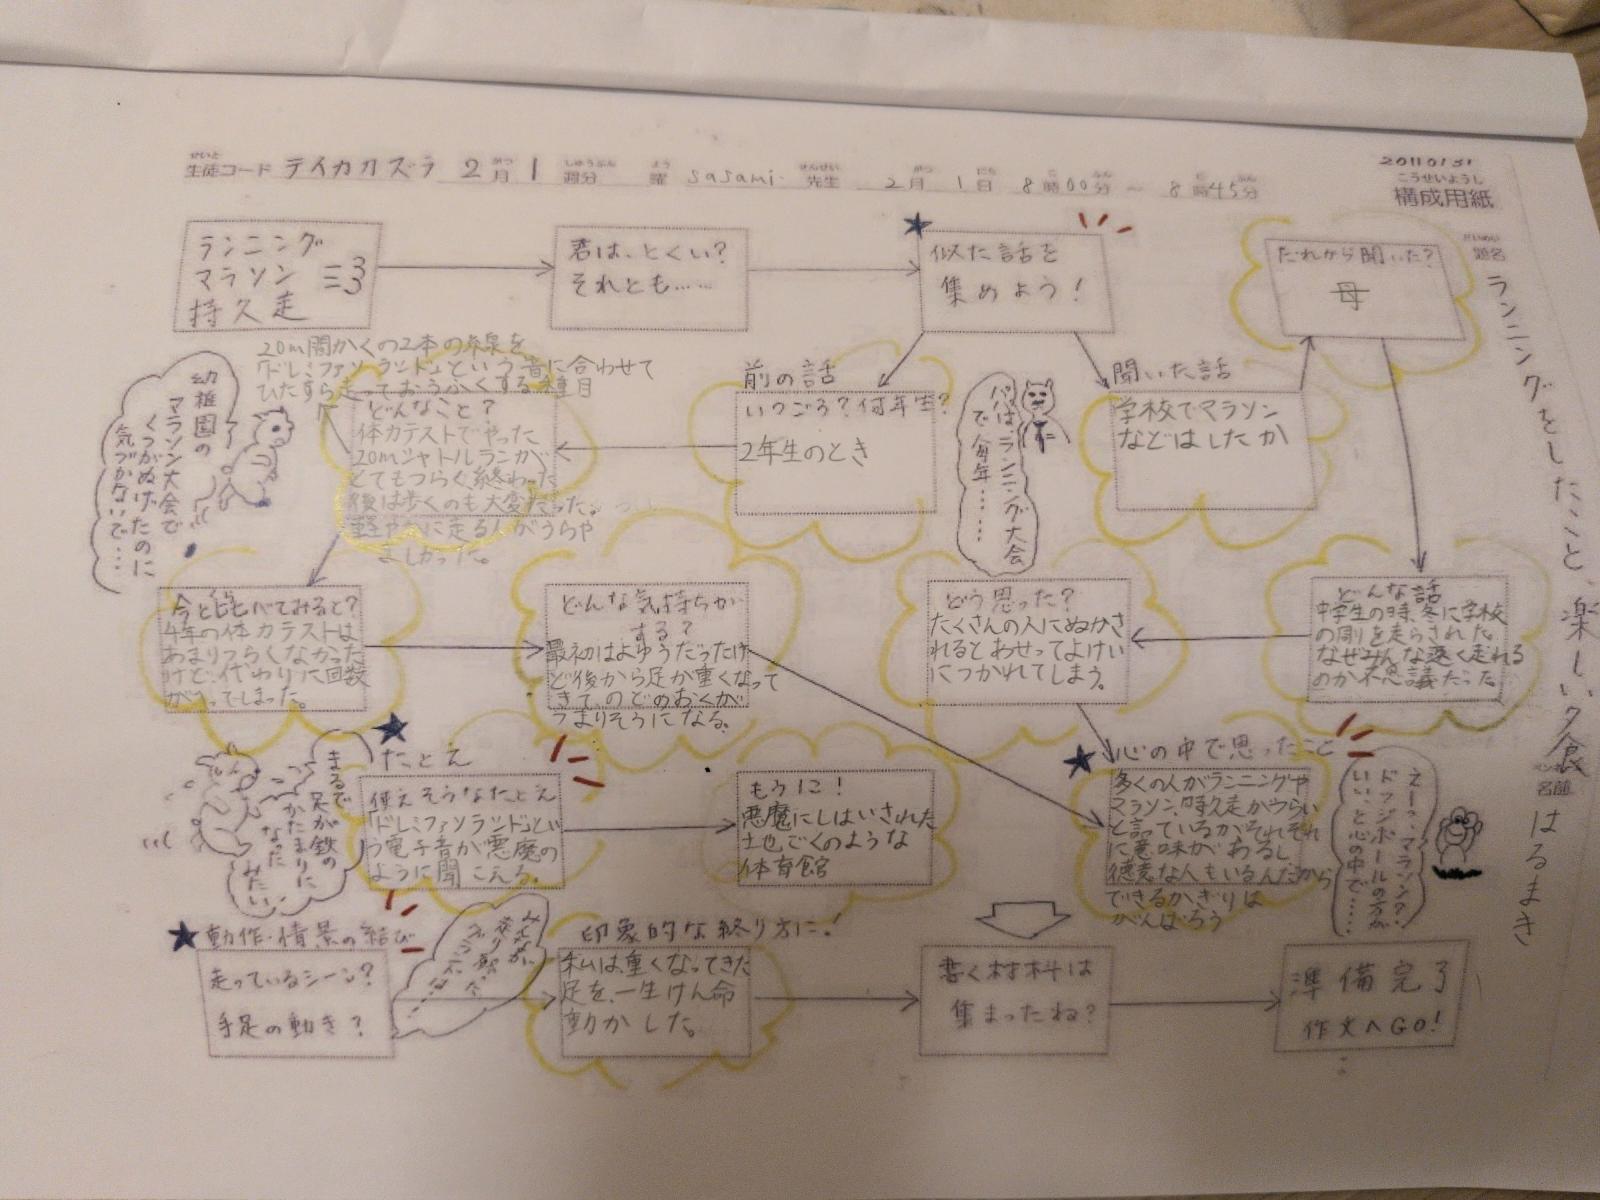 生徒コード テイカカズラ 2月 1週分 曜 sasami 先生 2月 1日 8時00分 ~ 8時45分
構成用紙
題名 ランニングをしたこと、楽しい夕食
名前 はるまき
ランニング
マラソン
持久走
君は、とくい?
それとも……
★
似た話を
集めよう!
だれから聞いた?
母
20m間かくの2本の線を
「ドレミファソランド」という音に合わせて
ひたすら走っておうふくする種目
幼稚園の
マラソン大会で
くつがぬげたのに
気づかないで…
どんなこと?
体力テストでやった
20mシャトルランが
とてもつらく終わった
後は歩くのも大変だった。
軽やかに走る人がうらや
ましかった。
前の話
いつごろ?何年生?
2年生のとき
パパは、ランニング大会
で毎年……
聞いた話
学校でマラソン
などはしたか
今と比べてみると?
4年の体力テストは
あまりつらくなかった
けど、代わりに回数
がへってしまった。
どんな気持ちが
する?
最初はよゆうだったけ
ど後から足が重くなって
きて、のどのおくが
つまりそうになる。
どう思った?
たくさんの人にぬかさ
れるとあわせってよけい
につかれてしまう。
どんな話
中学生の時、冬に学校
の周りを走らされた。
なぜみんな速く走れる
のか不思議だった。
まるで
足が鉄の
かたまりに
なった
みたい
★
たとえ
使えそうなたとえ
「ドレミファソランド」とい
う電子音が悪魔の
ように聞こえる。
もう1こ!
悪魔にしはいされた
地ごくのような
体育館
★心の中で思ったこと
多くの人がランニングや
マラソン、持久走がつらい
と言っているがそれぞれ
に意味があるし
得意な人もいるんだから
できるかぎりは
がんばろう
えーっ、マラソン?
ドッジボールの方が
いい、と心の中で……
★動作・情景の結び
走っているシーン?
手足の動き?
印象的な終り方に!
私は、重くなってきた
足を、一生けん命
動かした。
書く材料は
集まったね?
準備完了
作文へGO!